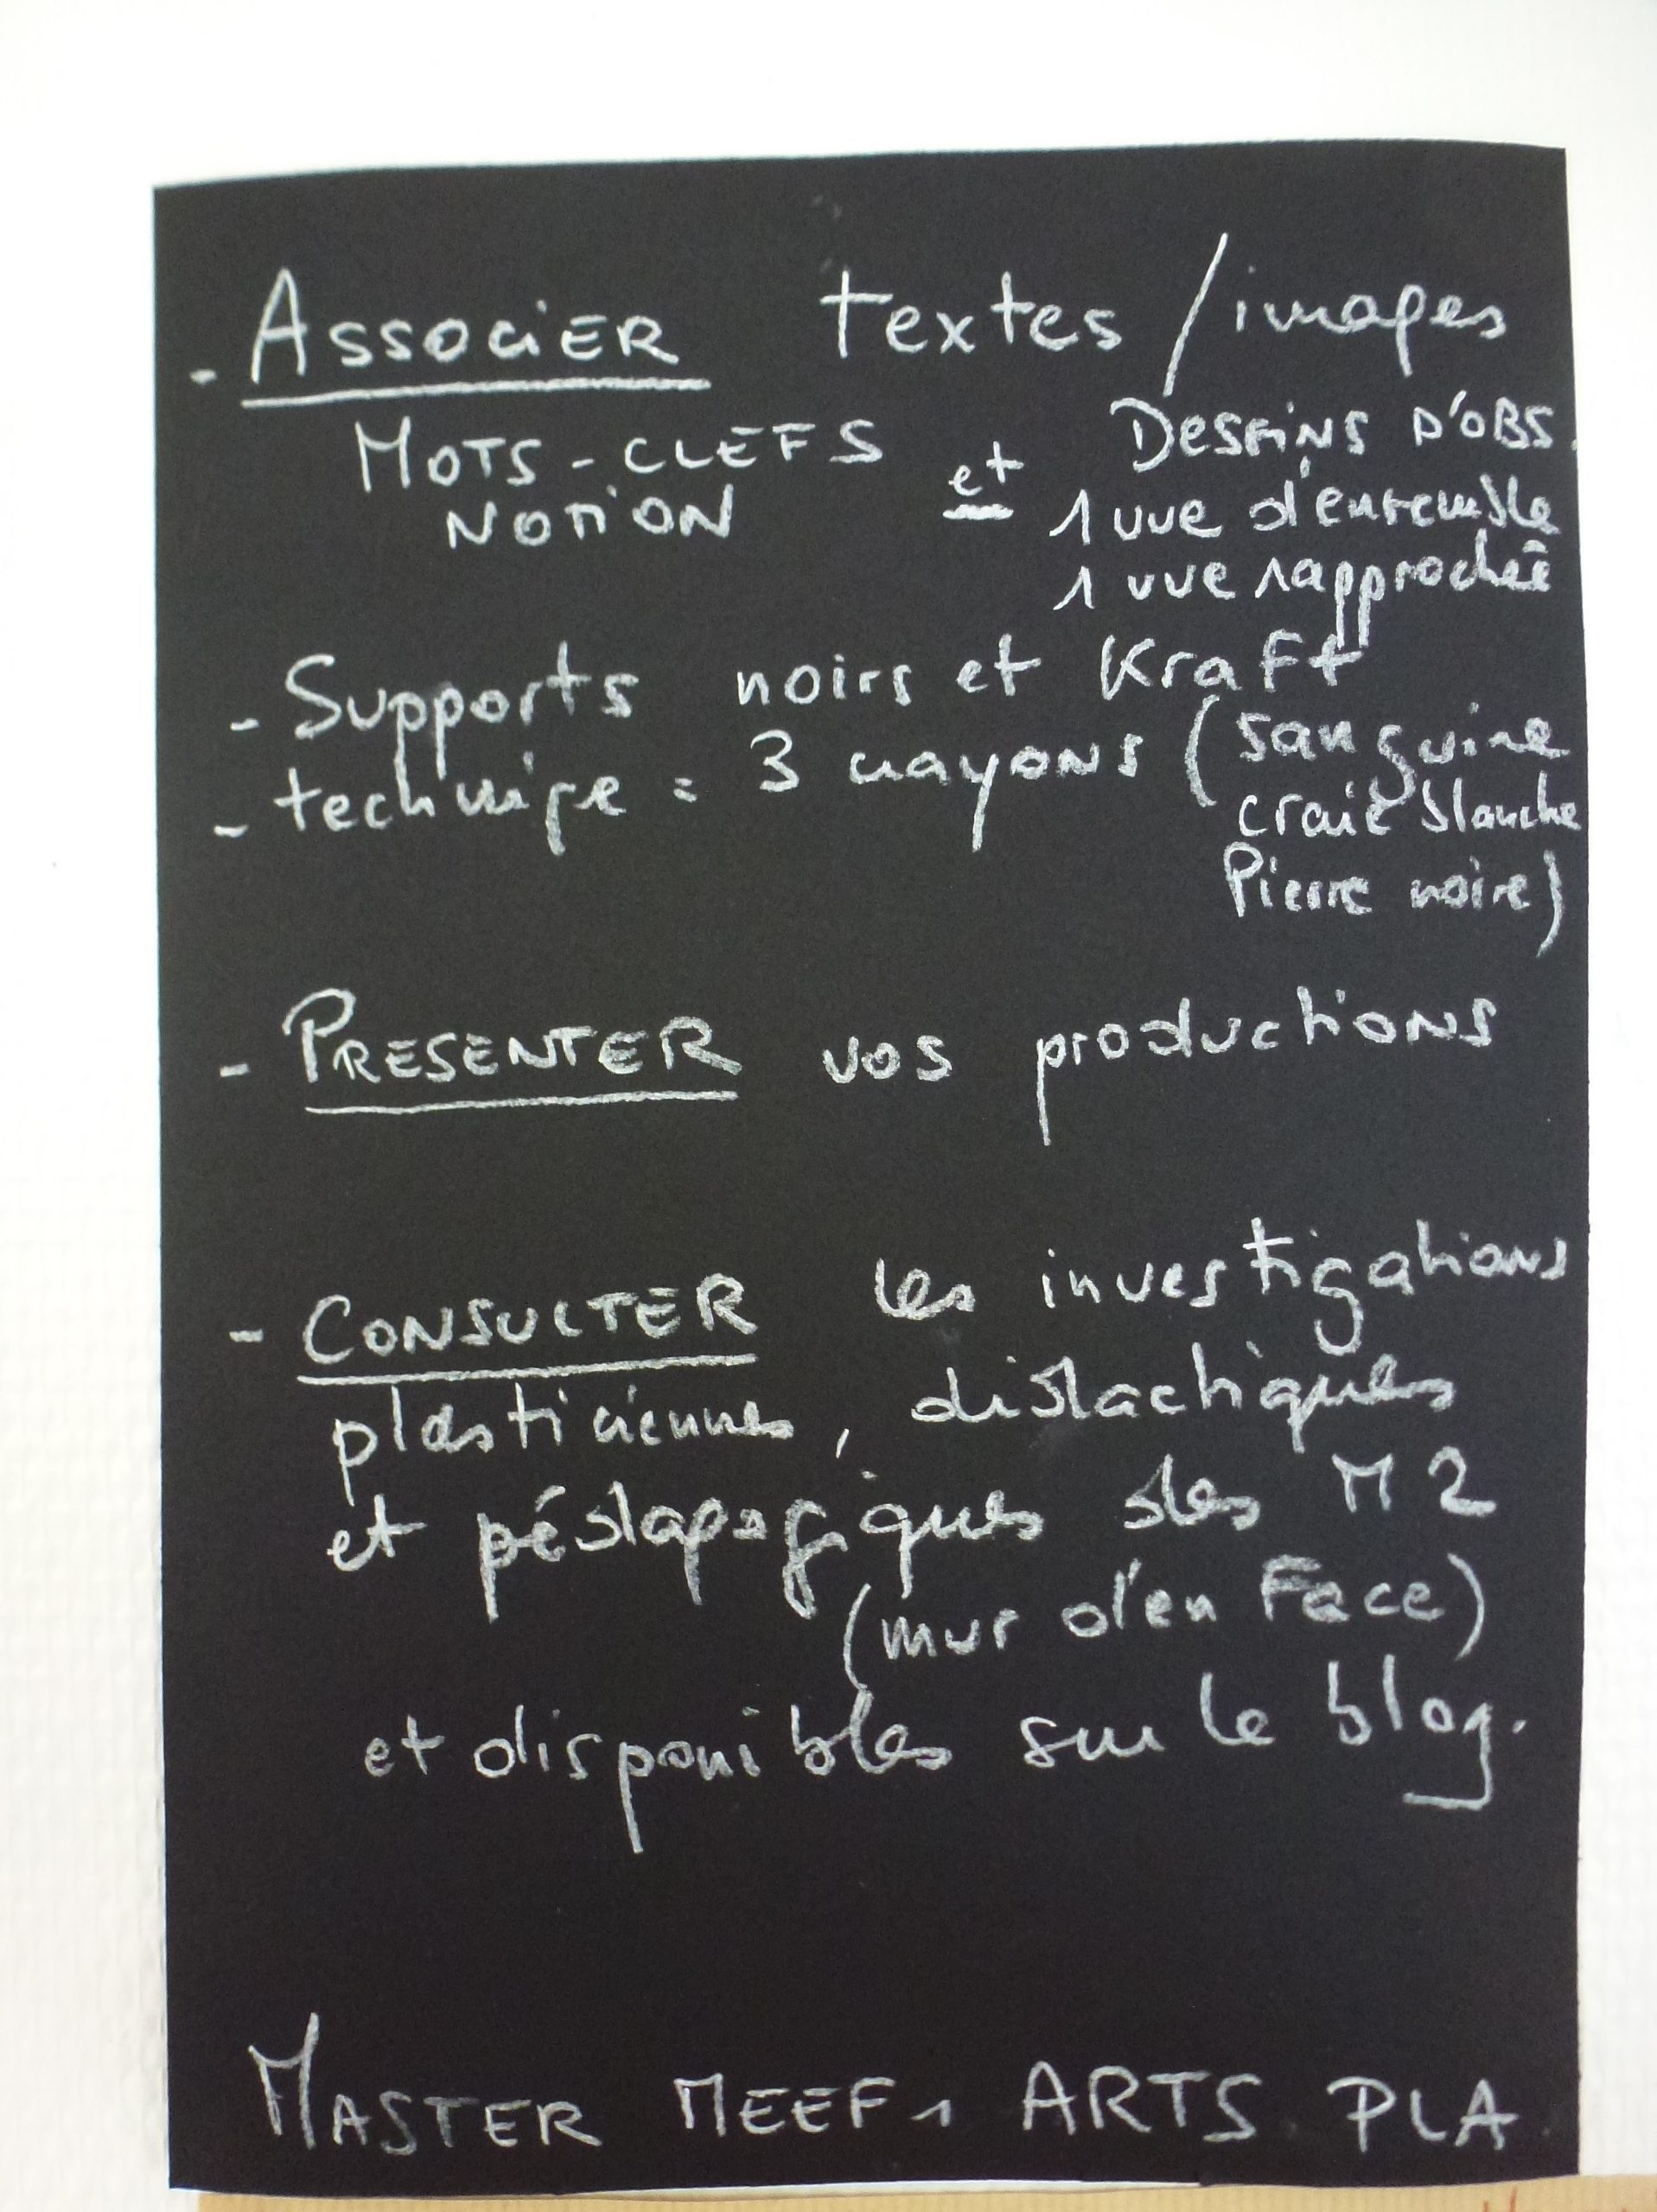 - ASSOCIER textes / images
MOTS-CLEFS et DESSINS D'OBS.
NOTION 1 vue d'ensemble
1 vue rapprochée
- Supports noirs et Kraft
- technique = 3 crayons (sanguine
craie blanche
Pierre noire)
- PRESENTER vos productions
- CONSULTER les investigations
plasticiennes, didactiques
et pédagogiques des M2
(mur d'en Face)
et disponibles sur le blog.
MASTER MEEF1 ARTS PLA